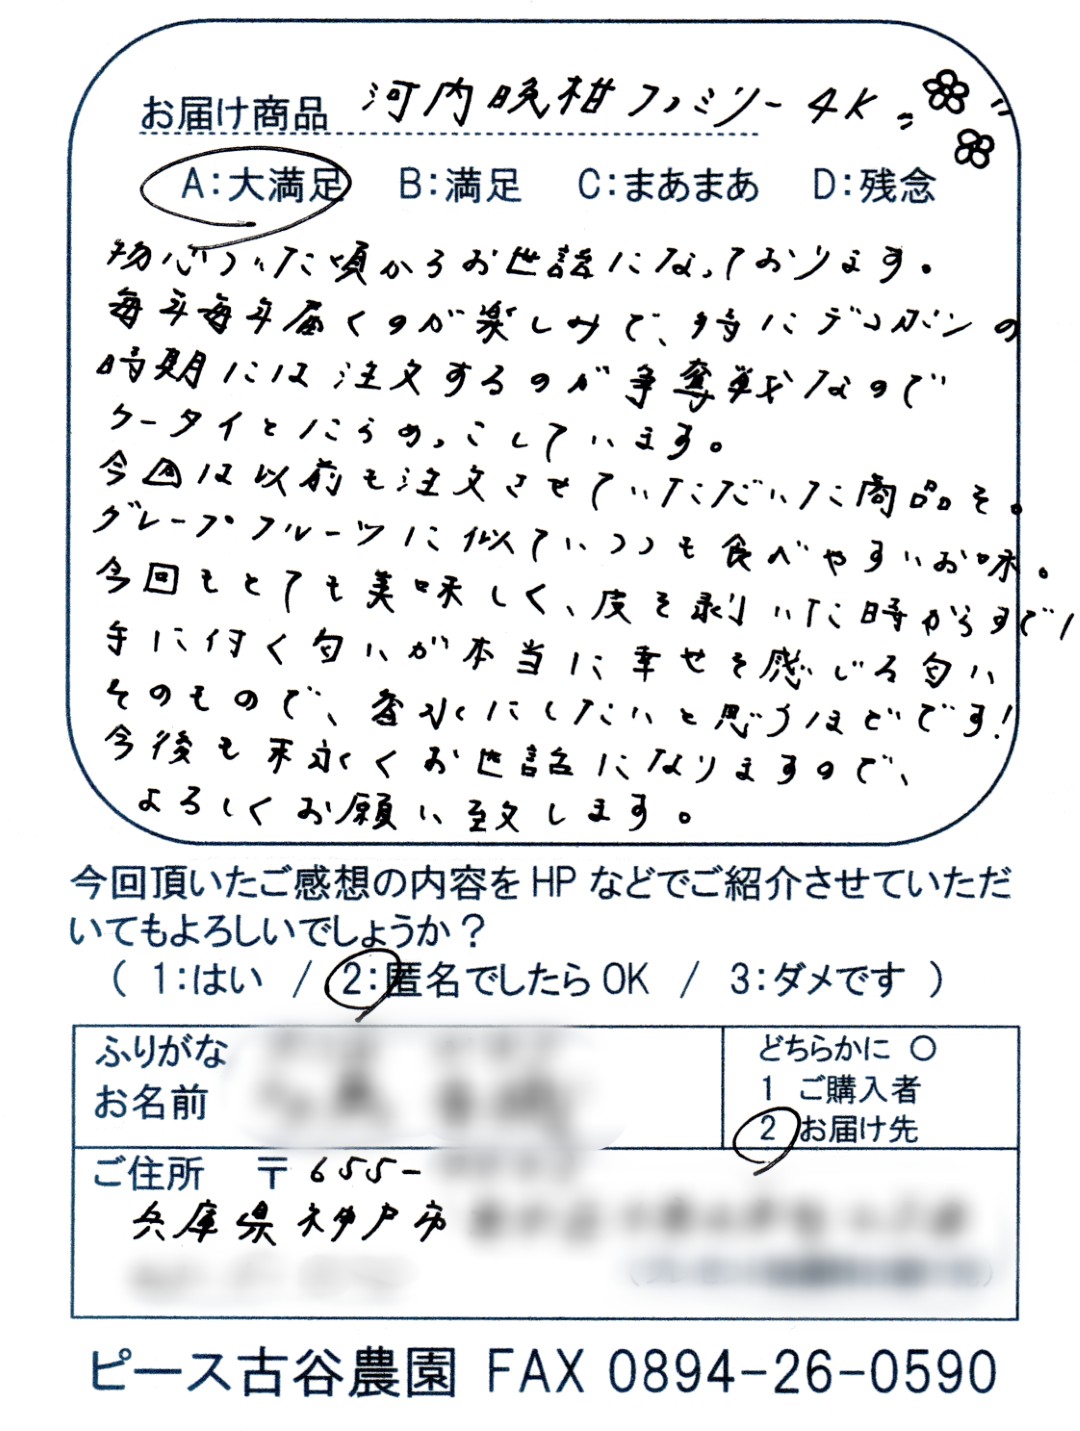 お届け商品 河内晩柑ファミリー4K
A:大満足 B:満足 C:まあまあ D:残念
物心ついた頃からお世話になっております。
毎年毎年届くのが楽しみで、特にデコポンの
時期には注文するのが争奪戦なので
ケータイとにらめっこしています。
今回は以前も注文させていただいた商品を。
グレープフルーツに似ていつつも食べやすいお味。
今回もとても美味しく、皮を剥いた時からすでに
手に付く匂いが本当に幸せを感じる匂い
そのもので、香水にしたいと思うほどです!
今後も末永くお世話になりますので、
よろしくお願い致します。
今回頂いたご感想の内容をHPなどでご紹介させていただ
いてもよろしいでしょうか?
( 1:はい / 2:匿名でしたらOK / 3:ダメです )
ふりがな
お名前
どちらかに ○
1 ご購入者
2 お届け先
ご住所 〒655-
兵庫県神戸市
ピース古谷農園 FAX 0894-26-0590